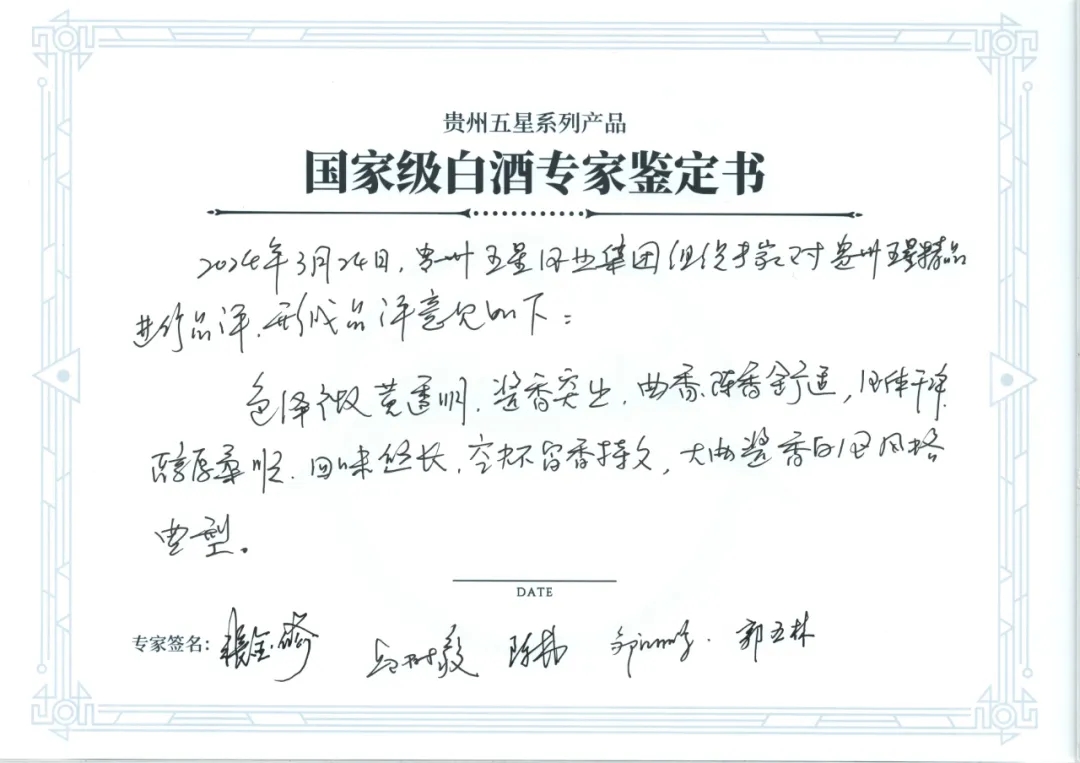 贵州五星系列产品
国家级白酒专家鉴定书
2024年3月24日,贵州五星酒业集团组织专家对贵州五星精品
进行品评,形成品评意见如下:
色泽微黄透明,酱香突出,曲香、陈香舒适,酒体干净
醇厚柔顺、回味悠长,空杯留香持久,大曲酱香白酒风格
典型。
DATE
专家签名: 郭五林